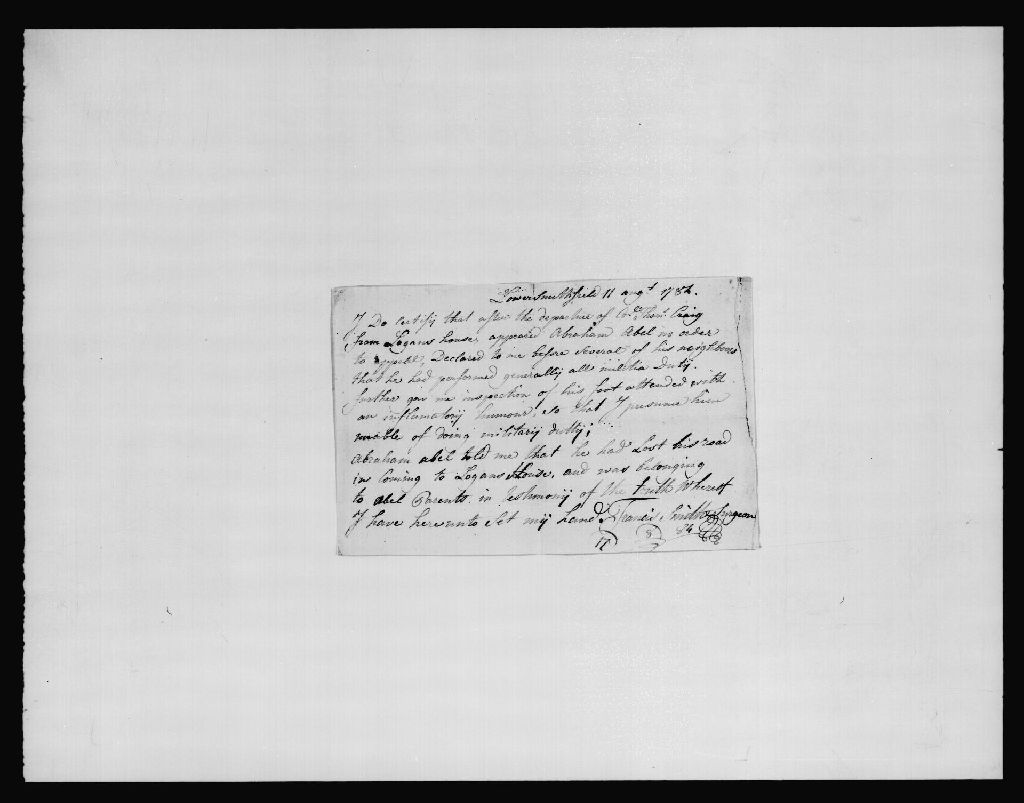 Lower Smithfield 11 augt 1784.
I Do Certify that after the departure of Thos. Craig
from Logans house, appeared Abraham Abel in order
to appeal, Declared to me before several of his neighbours
that he had performed generally all militia Duty.
further gav me inspection of his foot attended with
an inflamatory humour, so that I presume him
unable of doing military dutty;
Abraham abel told me that he had Lost his road
in Coming to Logans House, and was belonging
to abel Parents in Testimony of the truth Whereof
I have hereunto Set my hand Francis Smith Surgeon
11 8 84